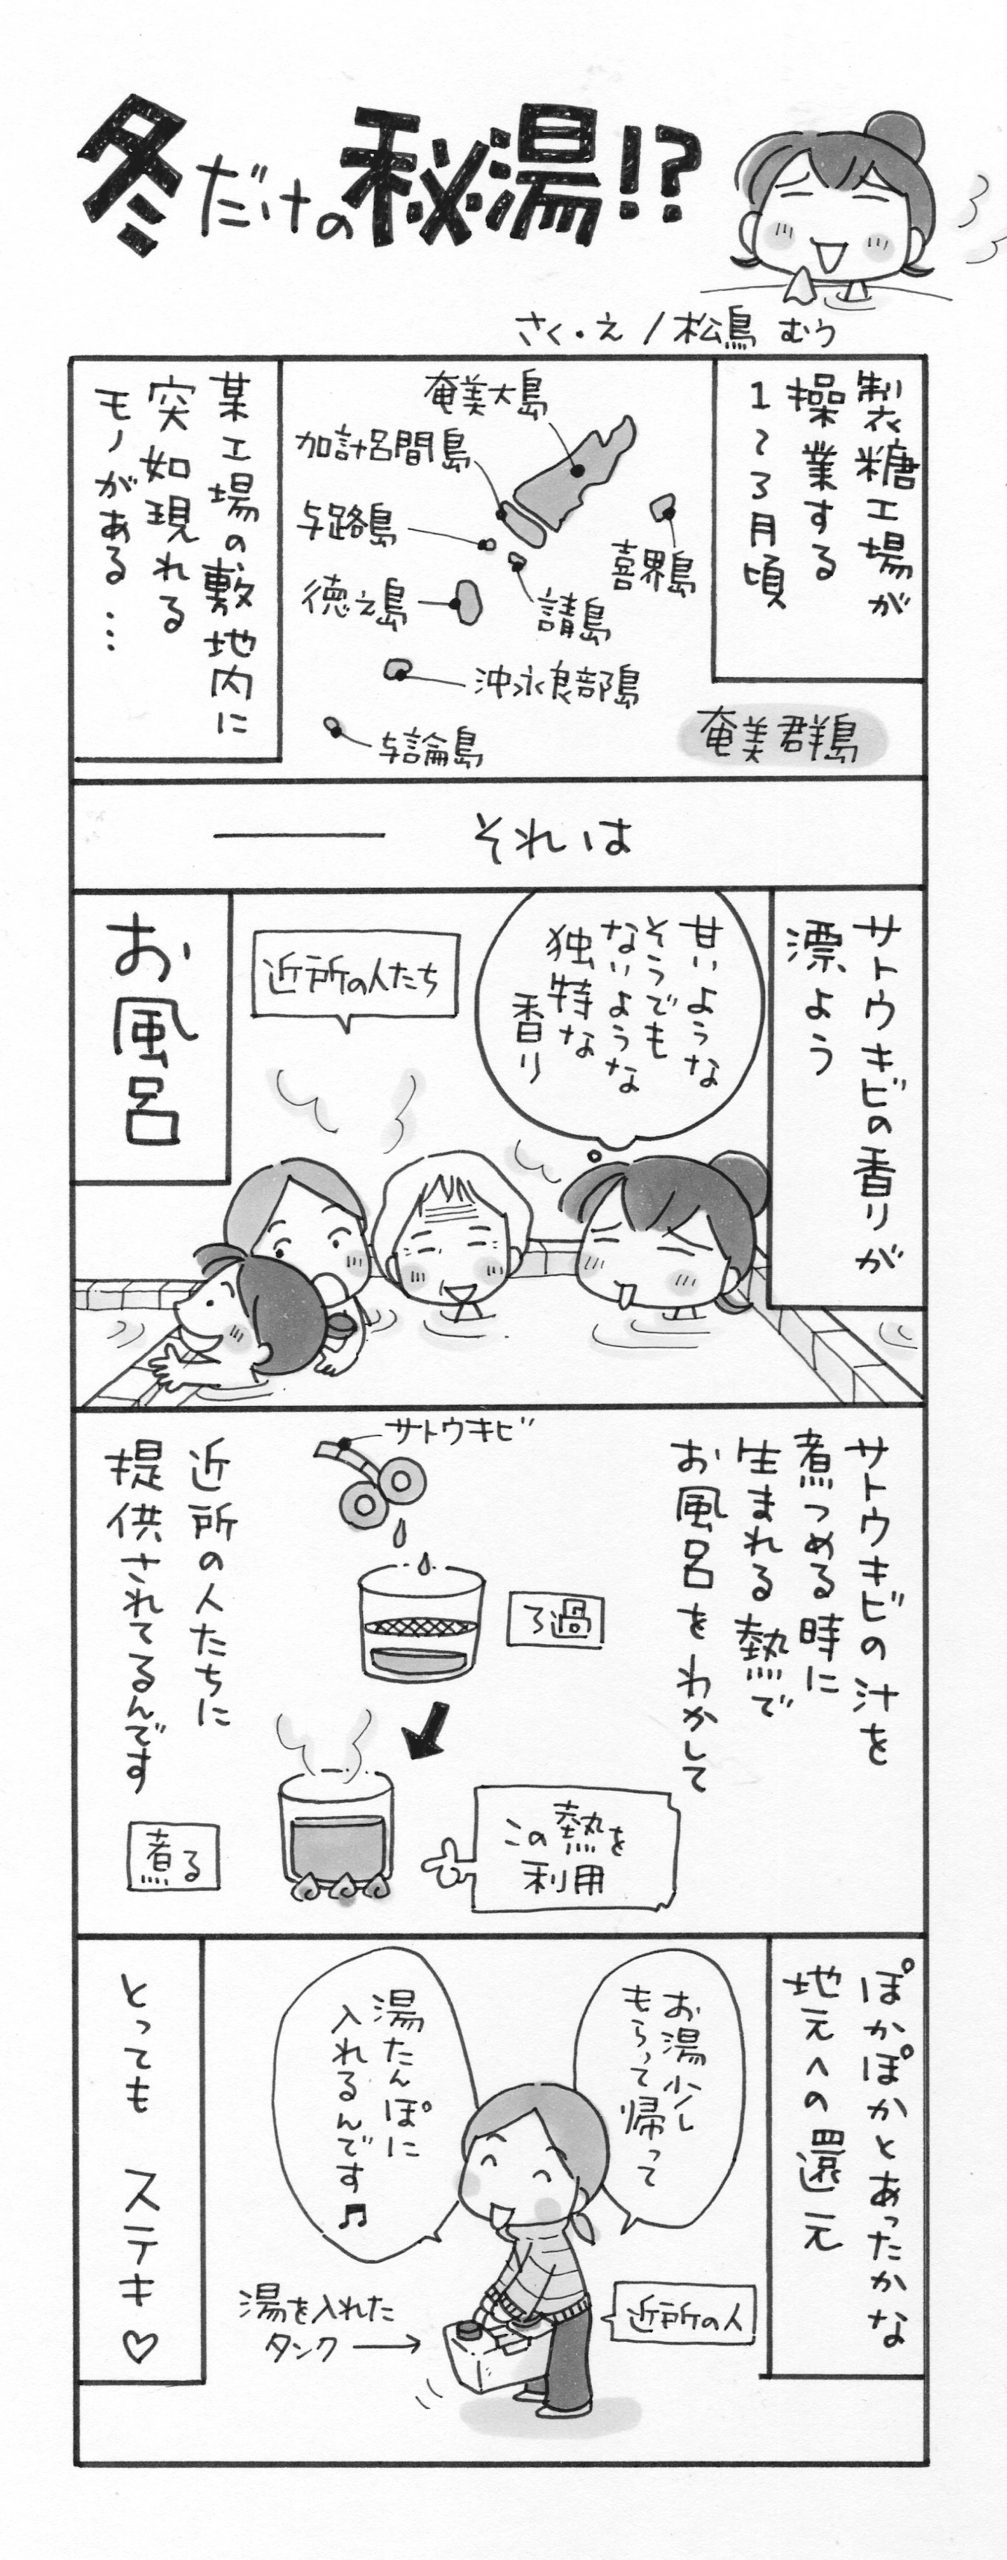 冬だけの秘湯!?
さく・え/松鳥むう
製糖工場が
操業する
1〜3月頃
奄美大島
加計呂間島
与路島
喜界島
請島
徳之島
沖永良部島
与論島
奄美群島
某工場の敷地内に
突如現れる
モノがある…
それは
サトウキビの香りが
漂よう
甘いような
そうでも
ないような
独特な
香り
近所の人たち
お風呂
サトウキビの汁を
煮つめる時に
生まれる熱で
お風呂をわかして
サトウキビ
ろ過
この熱を
利用
煮る
近所の人たちに
提供されてるんです
ぽかぽかとあったかな
地元への還元
お湯少し
もらって帰って
湯たんぽに
入れるんです♬
近所の人
湯を入れた
タンク→
とっても ステキ♡